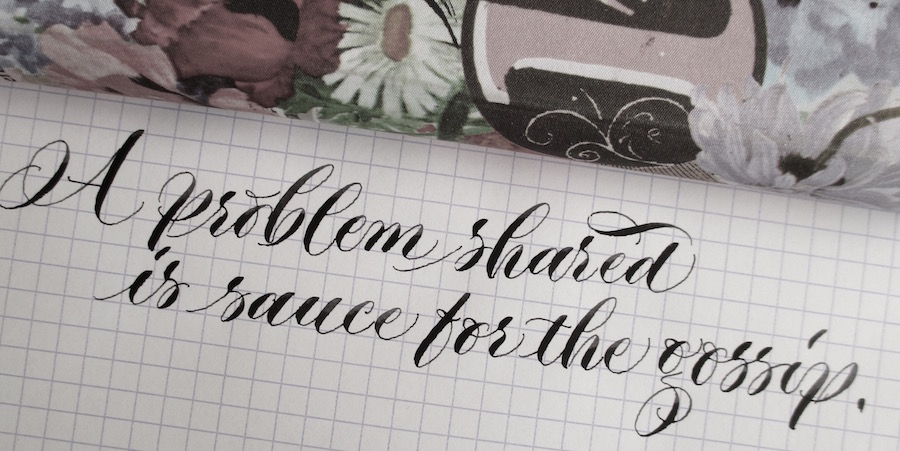 A problem shared
is sauce for the gossip.